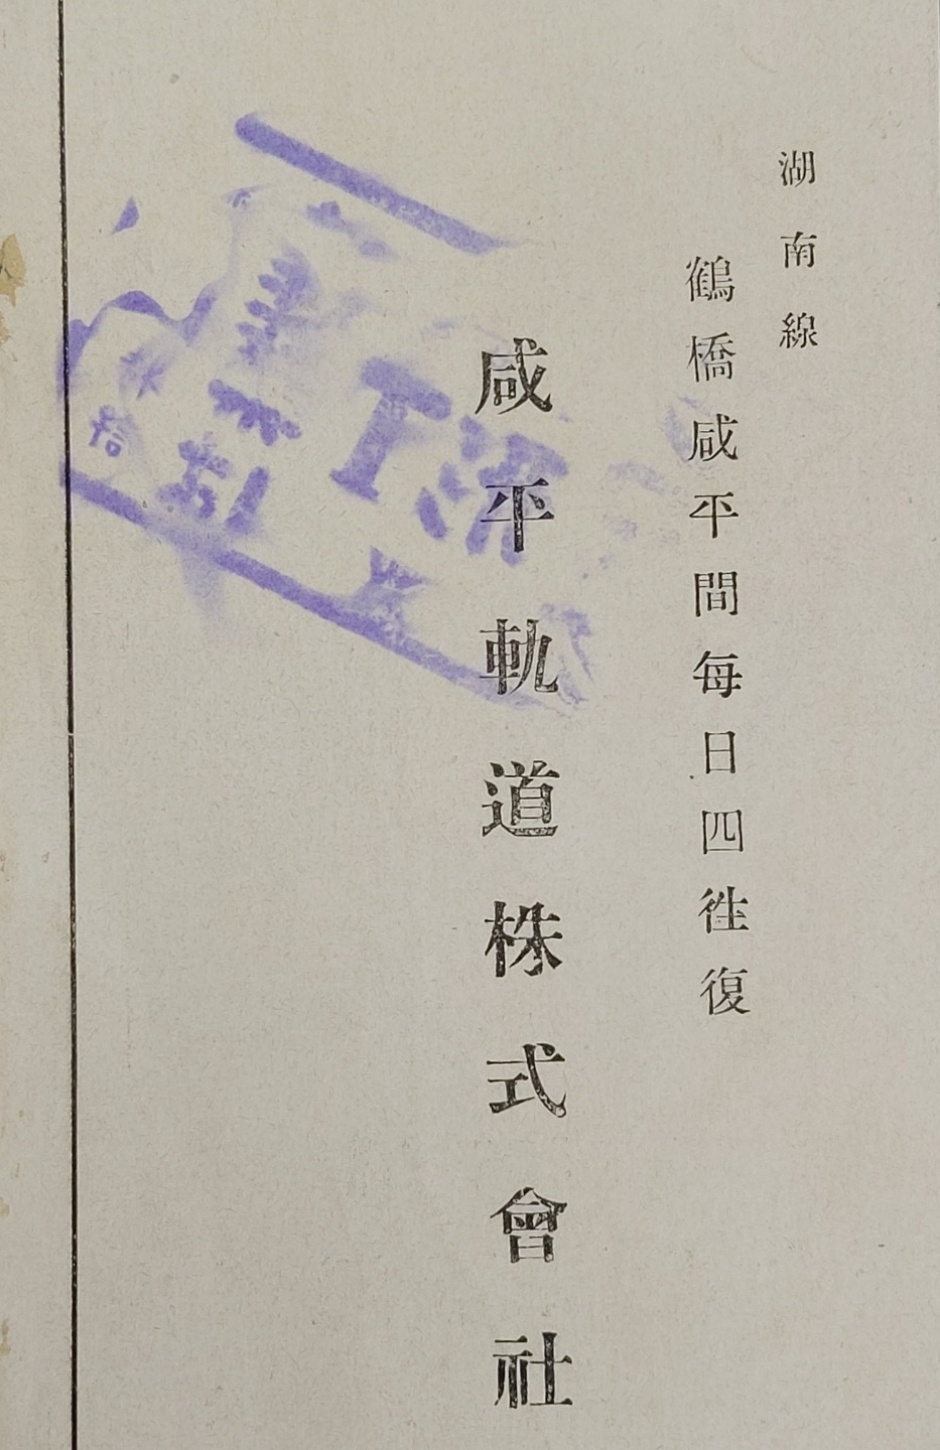 湖南線
鶴橋咸平間每日四徃復
咸平軌道株式會社